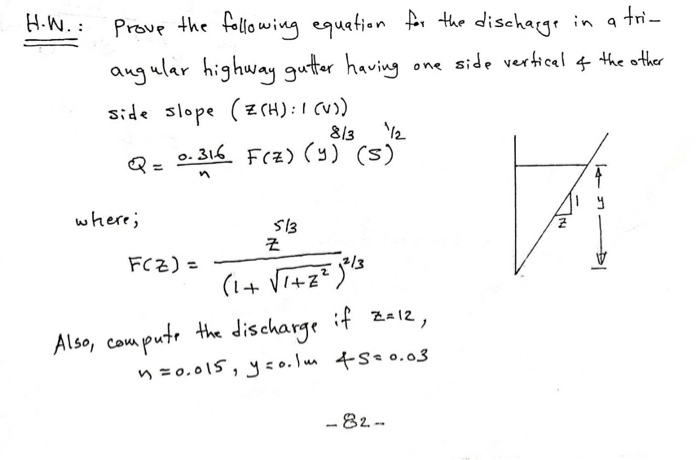 H.W.: Prove the following equation for the discharge in a tri-
angular highway gutter having one side vertical & the other
side slope (Z(H):1(V))
Q = 0.316/n F(Z) (y)^8/3 (S)^1/2
where;
F(Z) = Z^5/3 / (1+√1+Z²)^2/3
1
y
Z
Also, compute the discharge if Z=12,
n=0.015, y=0.1m & S=0.03
-82-